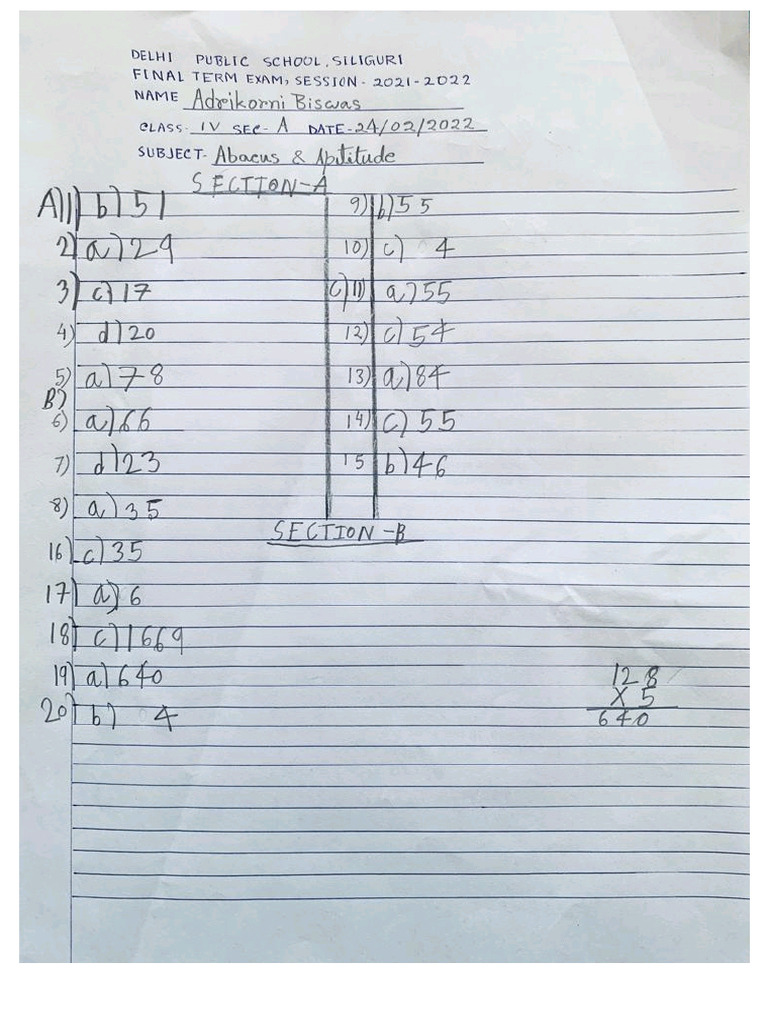 DELHI PUBLIC SCHOOL, SILIGURI
FINAL TERM EXAM, SESSION - 2021-2022
NAME Adreikorni Biswas
CLASS- IV SEC- A DATE-24/02/2022
SUBJECT- Abacus & Aptitude
SECTION-A
A)1) b) 51
2) a) 29
3) c) 17
4) d) 20
5) a) 78
B)
6) a) 66
7) d) 23
8) a) 35
9) b) 55
10) c) 4
C) 11) a) 55
12) c) 54
13) a) 84
14) c) 55
15 b) 46
SECTION -B
16) c) 35
17) a) 6
18) c) 1669
19) a) 640
20) b) 4
128
X 5
640